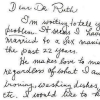 Dear Dr. Ruth:
I'm writing to tell
problem. It seems I have
married to a sex maniac
the past 22 years.
He makes love to me
regardless of what I am
ironing, washing dishes,
etc. I would like to